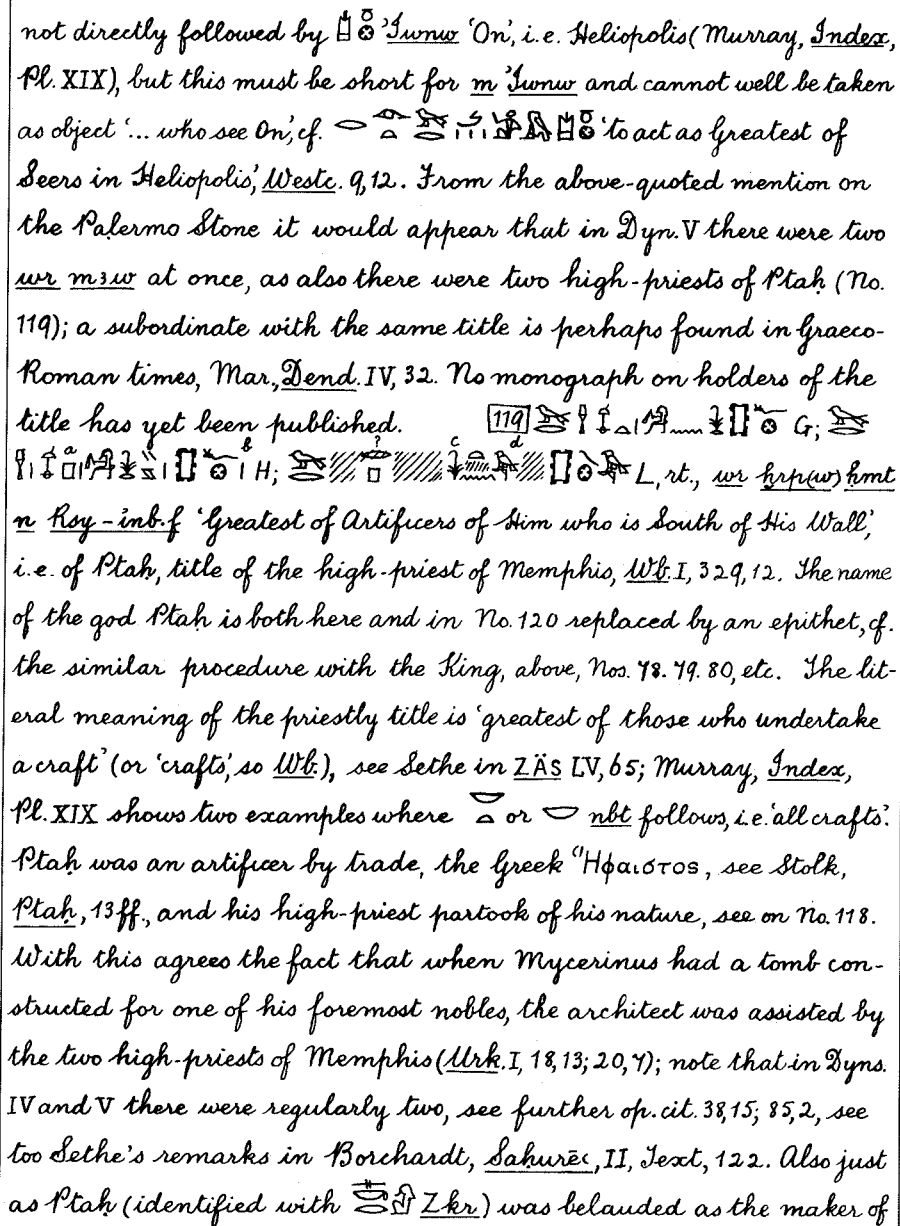 not directly followed by 'Iwnw 'On', i.e. Heliopolis (Murray, Index,
Pl. XIX), but this must be short for m 'Iwnw and cannot well be taken
as object '... who see On', cf. 'to act as Greatest of
Seers in Heliopolis', Westc. 9, 12. From the above-quoted mention on
the Palermo Stone it would appear that in Dyn. V there were two
wr mꜣw at once, as also there were two high-priests of Ptaḥ (No.
119); a subordinate with the same title is perhaps found in Graeco-
Roman times, Mar., Dend. IV, 32. No monograph on holders of the
title has yet been published. 119 G;
H; L, rt., wr ḫrp(w) ḥmt
n Rsy-inb.f 'Greatest of Artificers of Him who is South of His Wall',
i.e. of Ptaḥ, title of the high-priest of Memphis, Wb. I, 329, 12. The name
of the god Ptaḥ is both here and in No. 120 replaced by an epithet, cf.
the similar procedure with the King, above, Nos. 78. 79. 80, etc. The lit-
eral meaning of the priestly title is 'greatest of those who undertake
a craft' (or 'crafts', so Wb.), see Sethe in ZÄS LV, 65; Murray, Index,
Pl. XIX shows two examples where or nbt follows, i.e. 'all crafts'.
Ptaḥ was an artificer by trade, the Greek Ἥφαιστος, see Stolk,
Ptaḥ, 13ff., and his high-priest partook of his nature, see on No. 118.
With this agrees the fact that when Mycerinus had a tomb con-
structed for one of his foremost nobles, the architect was assisted by
the two high-priests of Memphis (Urk. I, 18, 13; 20, 7); note that in Dyns.
IV and V there were regularly two, see further op. cit. 38, 15; 85, 2, see
too Sethe's remarks in Borchardt, Saḥurēʿ, II, Text, 122. Also just
as Ptaḥ (identified with Zkr) was belauded as the maker of